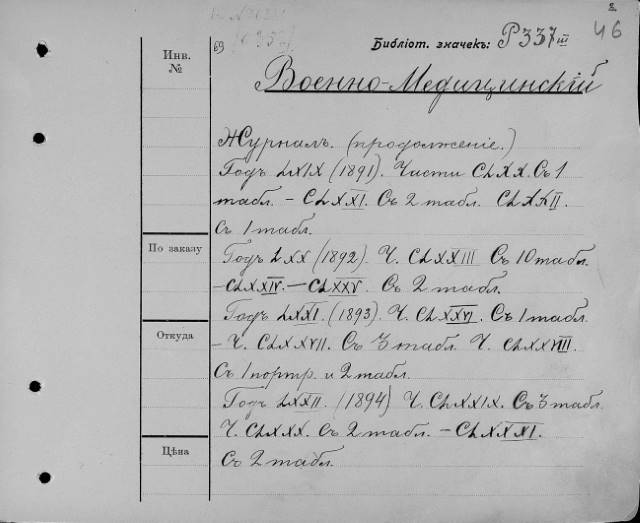 46
69 Библіот. значекъ: P337 III
Инв.
№
Военно-Медицинскій
Журналъ. (продолженіе.)
Годъ LXIX (1891). Части CLXX. Съ 1
табл. – CLXXI. Съ 2 табл. CLXXII.
Съ 1 табл.
По заказу
Годъ LXX (1892). Ч. CLXXIII Съ 10 табл.
–CLXXIV. –CLXXV. Съ 2 табл.
Годъ LXXI. (1893). Ч. CLXXVI. Съ 1 табл.
Откуда
– Ч. CLXXVII. Съ 3 табл. Ч. CLXXVIII.
Съ 1 портр. и 2 табл.
Годъ LXXII. (1894) Ч. CLXXIX. Съ 3 табл.
Ч. CLXXX. Съ 2 табл. – CLXXXI.
Цѣна
Съ 2 табл.